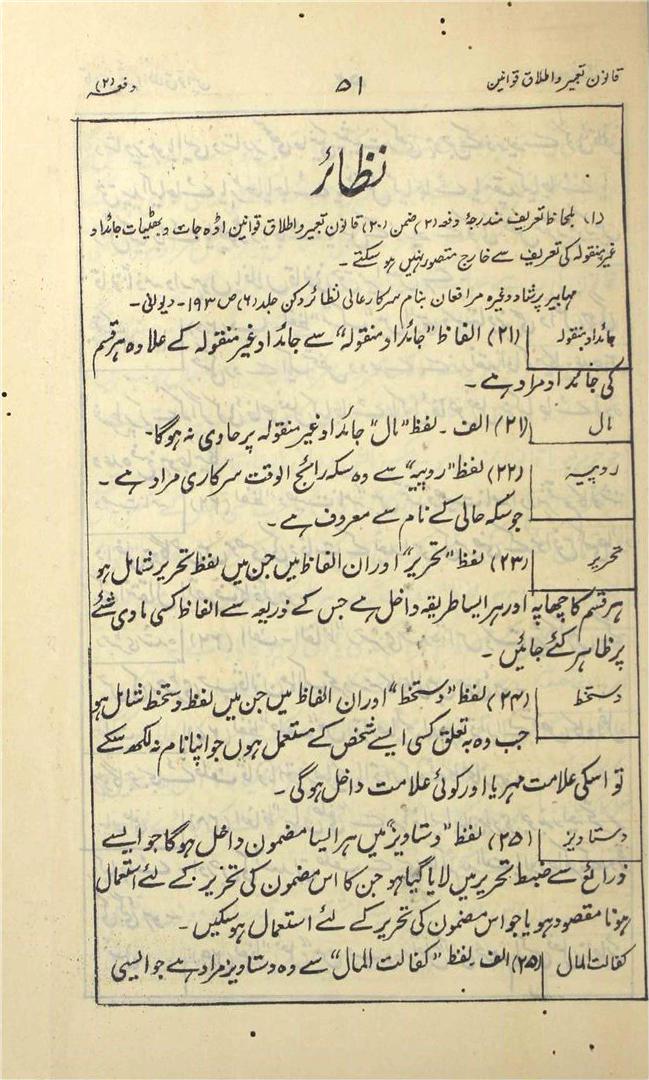 قانون تعبیر و اطلاق قوانین ۵۱ دفعہ (۲)
نظائر
(۱) بلحاظ تعریف مندرجۂ دفعہ (۲) ضمن (۲۰) قانون تعبیر و اطلاق قوانین اڈہ جات و بھٹیات جائداد
غیر منقولہ کی تعریف سے خارج متصور نہیں ہو سکتے ۔
مہابیر پرشاد وغیرہ مرافعان بنام سرکار عالی نظائر دکن جلد (۶) ص ۱۹۳ ۔ دیوانی ۔
جائداد منقولہ (۲۱) الفاظ "جائداد منقولہ" سے جائداد غیر منقولہ کے علاوہ ہر قسم
کی جائداد مراد ہے ۔
مال (۲۱) الف ۔ لفظ "مال" جائداد غیر منقولہ پر حاوی نہ ہوگا ۔
روپیہ (۲۲) لفظ "روپیہ" سے وہ سکہ رائج الوقت سرکاری مراد ہے ۔
جو سکہ حالی کے نام سے معروف ہے ۔
تحریر (۲۳) لفظ "تحریر" اور ان الفاظ میں جن میں لفظ تحریر شامل ہو
ہر قسم کا چھاپہ اور ہر ایسا طریقہ داخل ہے جس کے ذریعہ سے الفاظ کسی مادی شئے
پر ظاہر کئے جائیں ۔
دستخط (۲۴) لفظ "دستخط" اور ان الفاظ میں جن میں لفظ دستخط شامل ہو
جب وہ بہ تعلق کسی ایسے شخص کے مستعمل ہوں جو اپنا نام نہ لکھ سکے
تو اسکی علامت مہر یا اور کوئی علامت داخل ہوگی ۔
دستاویز (۲۵) لفظ "دستاویز" میں ہر ایسا مضمون داخل ہوگا جو ایسے
ذرائع سے ضبط تحریر میں لایا گیا ہو جن کا اس مضمون کی تحریر کے لئے استعمال
ہونا مقصود ہو یا جو اس مضمون کی تحریر کے لئے استعمال ہو سکیں ۔
کفالت المال (۲۵) الف ۔ لفظ "کفالت المال" سے وہ دستاویز مراد ہے جو ایسی